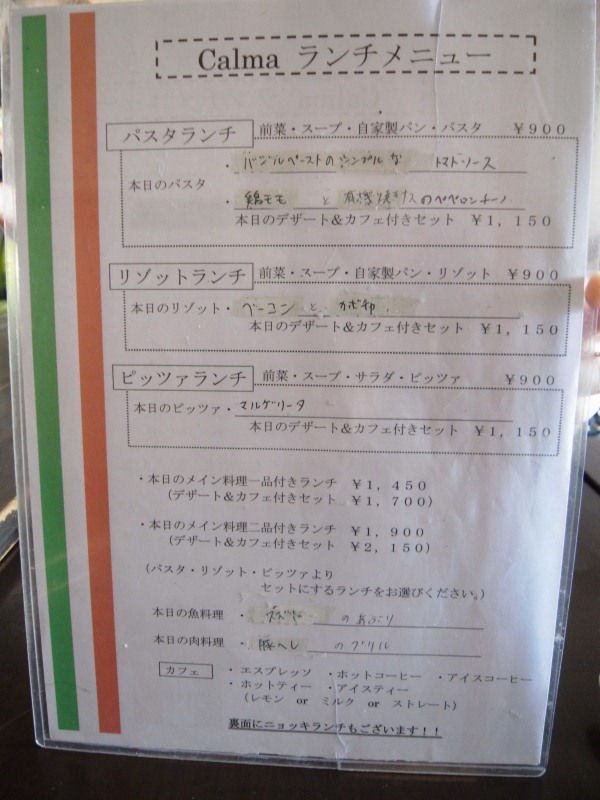 Calma ランチメニュー
パスタランチ 前菜・スープ・自家製パン・パスタ ￥９００
本日のパスタ
・バジルペーストのシンプルな トマトソース
・鶏モモ と 有機焼きナスのペペロンチーノ
本日のデザート＆カフェ付きセット ￥１，１５０
リゾットランチ 前菜・スープ・自家製パン・リゾット ￥９００
本日のリゾット・ベーコン と カボチャ
本日のデザート＆カフェ付きセット ￥１，１５０
ピッツァランチ 前菜・スープ・サラダ・ピッツァ ￥９００
本日のピッツァ・マルゲリータ
本日のデザート＆カフェ付きセット ￥１，１５０
・本日のメイン料理一品付きランチ ￥１，４５０
（デザート＆カフェ付きセット ￥１，７００）
・本日のメイン料理二品付きランチ ￥１，９００
（デザート＆カフェ付きセット ￥２，１５０）
（パスタ・リゾット・ピッツァより
セットにするランチをお選びください。）
本日の魚料理 ・ のあぶり
本日の肉料理 ・ 豚ヘレ のグリル
カフェ ・エスプレッソ ・ホットコーヒー ・アイスコーヒー
・ホットティー ・アイスティー
（レモン or ミルク or ストレート）
裏面にニョッキランチもございます！！